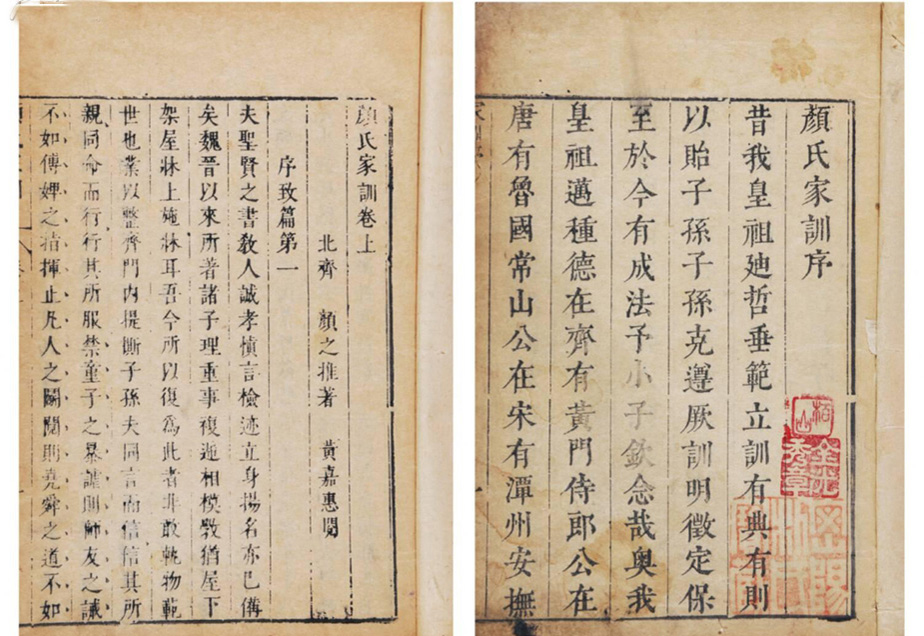 顏氏家訓序
昔我皇祖廸哲垂範立訓有典有則
以貽子孫子孫克遵厥訓明徵定保
至於今有成法予小子欽念哉奥我
皇祖邁種德在齊有黃門侍郎公在
唐有魯國常山公在宋有潭州安撫
顏氏家訓卷上
北齊 顏之推著 黃嘉惠閱
序致篇第一
夫聖賢之書教人誠孝慎言檢迹立身揚名亦已備
矣魏晉以來所著諸子理重事複遞相模斆猶屋下
架屋牀上施牀耳吾今所以復爲此者非敢軌物範
世也業以整齊門內提撕子孫夫同言而信信其所
親同命而行行其所服禁童子之暴謔則師友之誡
不如傅婢之指揮止凡人之鬬鬩則堯舜之道不如